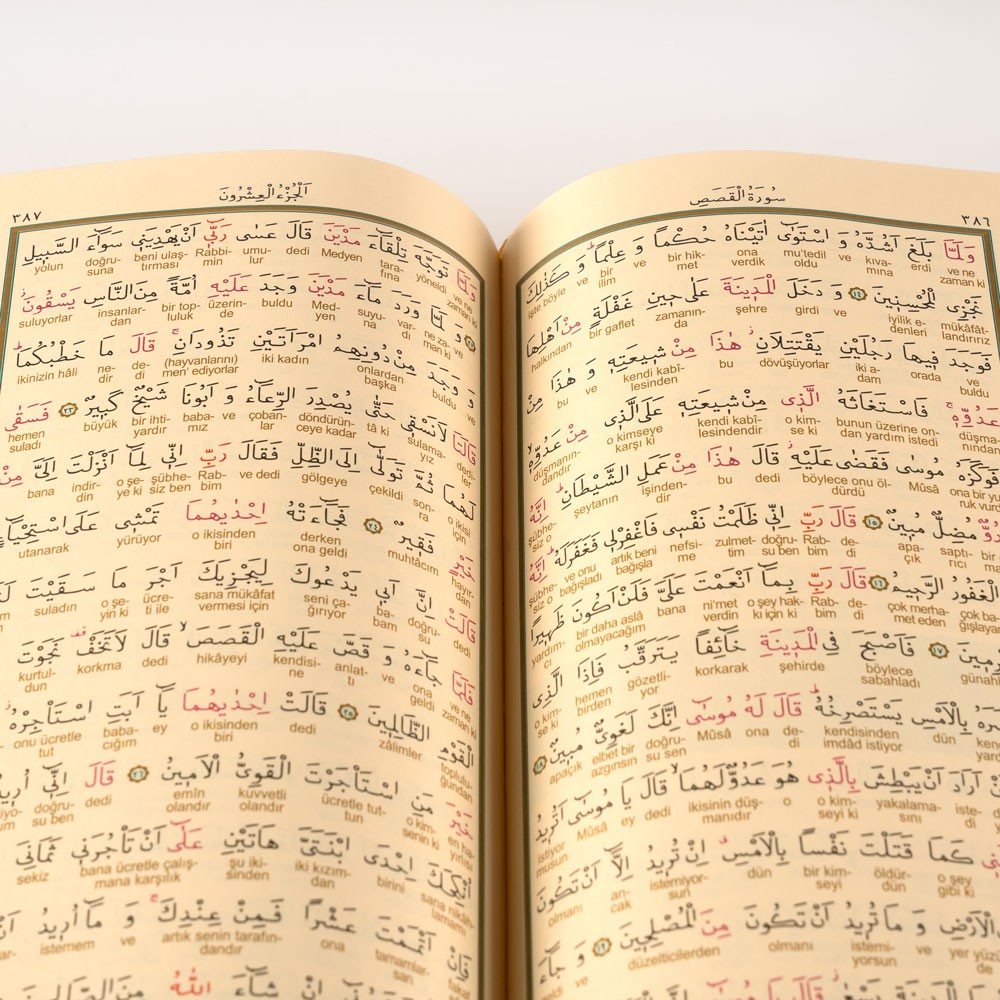 سُورَةُ الْقَصَصِ
٣٨٦
وَلَمَّا بَلَغَ اَشُدَّهُ وَ اسْتَوٰٓى اٰتَيْنَاهُ حُكْمًا وَ عِلْمًاۜ وَ كَذٰلِكَ
işte böyle ve ilim ve bir hikmet ona verdik mu'tedil oldu ve kıvamına erdi ve ne zaman ki
نَجْزِي الْمُحْسِنِينَ ﴿١٤﴾ وَ دَخَلَ الْمَدِينَةَ عَلٰى حِينِ غَفْلَةٍ مِنْ اَهْلِهَا
halkından bir gaflet zamanında şehre girdi ve iyilik edenleri mükâfâtlandırırız
فَوَجَدَ فِيهَا رَجُلَيْنِ يَقْتَتِلَانِ هٰذَا مِنْ شِيعَتِهِ وَ هٰذَا مِنْ
bu ve kendi kabîlesinden bu dövüşüyorlar iki adam orada ve buldu
عَدُوِّهِ فَاسْتَغَاثَهُ الَّذِي مِنْ شِيعَتِهِ عَلَى الَّذِي مِنْ عَدُوِّهِ
düşmanındandır o kimseye karşı ki kendi kabîlesindendir o kimse ki bunun üzerine ondan yardım istedi
فَوَكَزَهُ مُوسٰى فَقَضٰى عَلَيْهِ قَالَ هٰذَا مِنْ عَمَلِ الشَّيْطَانِ اِنَّهُ
şübhesiz o şeytanın işindendir bu dedi böylece onu öldürdü Mûsâ
عَدُوٌّ مُضِلٌّ مُبِينٌ ﴿١٥﴾ قَالَ رَبِّ اِنِّي ظَلَمْتُ نَفْسِي فَاغْفِرْ لِي فَغَفَرَ لَهُ اِنَّهُ
şübhesiz o ve onu bağışladı artık beni bağışla nefsime zulmettim doğrusu ben Rabbim dedi apaçık saptırıcı
الْغَفُورُ الرَّحِيمُ ﴿١٦﴾ قَالَ رَبِّ بِمَا اَنْعَمْتَ عَلَيَّ فَلَنْ اَكُونَ ظَهِيرًا
yardımcı bir daha aslâ olmayacağım bana ni'met verdin o şey hakkı için ki Rabbim dedi çok merhamet eden
﴿١٧﴾ فَاَصْبَحَ فِي الْمَدِينَةِ خَائِفًا يَتَرَقَّبُ فَاِذَا الَّذِي
o kimse ki hemen birden gözetliyor korkarak şehirde böylece sabahladı
بِالْاَمْسِ يَسْتَصْرِخُهُ قَالَ لَهُ مُوسٰى اِنَّكَ لَغَوِيٌّ مُبِينٌ ﴿١٨﴾
apaçık elbet bir azgınsın doğrusu sen Mûsâ ona dedi kendisinden imdâd istiyor dün
اَرَادَ اَنْ يَبْطِشَ بِالَّذِي هُوَ عَدُوٌّ لَهُمَا قَالَ يَا مُوسٰى اَتُرِيدُ
istiyor musun Mûsâ ey dedi ikisinin düşmanıdır o o kimseyi ki yakalamasını
كَمَا قَتَلْتَ نَفْسًا بِالْاَمْسِ اِنْ تُرِيدُ اِلَّا اَنْ تَكُونَ
olmanı ancak istemiyorsun dün bir kimseyi öldürdün o şey gibi ki
الْاَرْضِ وَ مَا تُرِيدُ اَنْ تَكُونَ مِنَ الْمُصْلِحِينَ ﴿١٩﴾ وَ جَاءَ
düzelticilerden olmanı istemiyorsun ve
اَلْجُزْءُ الْعِشْرُونَ
٣٨٧
وَلَمَّا تَوَجَّهَ تِلْقَاءَ مَدْيَنَ قَالَ عَسٰى رَبِّي اَنْ يَهْدِيَنِي سَوَاءَ السَّبِيلِ
yolun doğrusuna beni ulaştırması Rabbimin umulur dedi Medyen tarafına yöneldi ve ne zaman ki
﴿٢٢﴾ وَ لَمَّا وَرَدَ مَاءَ مَدْيَنَ وَجَدَ عَلَيْهِ اُمَّةً مِنَ النَّاسِ يَسْقُونَ
suluyorlar insanlardan bir topluluk üzerinde buldu Medyen suyuna vardı ne zaman ki ve
وَ وَجَدَ مِنْ دُونِهِمُ امْرَاَتَيْنِ تَذُودَانِ قَالَ مَا خَطْبُكُمَا
ikinizin hâli nedir dedi (hayvanlarını) men' ediyorlar iki kadın onlardan başka buldu ve
قَالَتَا لَا نَسْقِي حَتّٰى يُصْدِرَ الرِّعَاءُ وَ اَبُونَا شَيْخٌ كَبِيرٌ ﴿٢٣﴾ فَسَقٰى
hemen suladı büyük bir ihtiyardır babamız ve çobanlar döndürünceye kadar tâ ki sulamayız dediler
لَهُمَا ثُمَّ تَوَلّٰى اِلَى الظِّلِّ فَقَالَ رَبِّ اِنِّي لِمَا اَنْزَلْتَ اِلَيَّ مِنْ
bana indirdin o şeye ki şübhesiz ben Rabbim ve dedi gölgeye çekildi sonra o ikisi için
خَيْرٍ فَقِيرٌ ﴿٢٤﴾ فَجَاءَتْهُ اِحْدٰيهُمَا تَمْشِي عَلَى اسْتِحْيَاءٍ
utanarak yürüyor o ikisinden biri derken ona geldi muhtâcım hayırdan
قَالَتْ اِنَّ اَبِي يَدْعُوكَ لِيَجْزِيَكَ اَجْرَ مَا سَقَيْتَ
suladın o şeyin ki ücreti ile sana mükâfat vermesi için seni çağırıyor babam doğrusu dedi
فَلَمَّا جَاءَهُ وَ قَصَّ عَلَيْهِ الْقَصَصَ قَالَ لَا تَخَفْ نَجَوْتَ
kurtuldun korkma dedi hikâyeyi kendisine anlattı ve ona geldi ve ne zaman ki
الْقَوْمِ الظَّالِمِينَ ﴿٢٥﴾ قَالَتْ اِحْدٰيهُمَا يَا اَبَتِ اسْتَأْجِرْهُ
onu ücretle tut babacığım ey o ikisinden biri dedi zâlimler topluluğundan
خَيْرَ مَنِ اسْتَأْجَرْتَ الْقَوِيُّ الْاَمِينُ ﴿٢٦﴾ قَالَ اِنِّي اُرِيدُ
doğrusu ben dedi emîn olandır kuvvetli olandır ücretle tuttun o kimsenin ki en hayırlısı
اُنْكِحَكَ اِحْدَى ابْنَتَيَّ هَاتَيْنِ عَلٰى اَنْ تَأْجُرَنِي ثَمَانِيَ
sekiz bana ücretle çalışmana karşılık şu ikisinden iki kızımdan birini sana nikâhlamamı
فَاِنْ اَتْمَمْتَ عَشْرًا فَمِنْ عِنْدِكَ وَ مَا اُرِيدُ اَنْ
istemem ve artık senin tarafındandır ona tamamlarsan
اِنْ شَاءَ اللّٰهُ مِنَ الصَّالِحِينَ